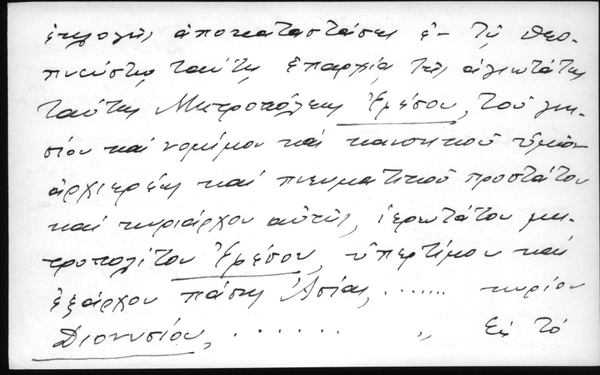 ἐκλογῆς ἀποκαταστάσεως ἐν τῇ θεο-
πνεύστῳ ταύτῃ ἐπαρχίᾳ τῆς ἁγιωτάτης
ταύτης Μητροπόλεως Ἐφέσου, τοῦ γνη-
σίου καὶ νομίμου καὶ κανονικοῦ ἡμῶν
ἀρχιερέως καὶ πνευματικοῦ προστάτου
καὶ κυριάρχου αὐτῆς, ἱερωτάτου μη-
τροπολίτου Ἐφέσου, ὑπερτίμου καὶ
ἐξάρχου πάσης Ἀσίας, ....... κυρίου
Διονυσίου, ....... „ Εἰς τὸ